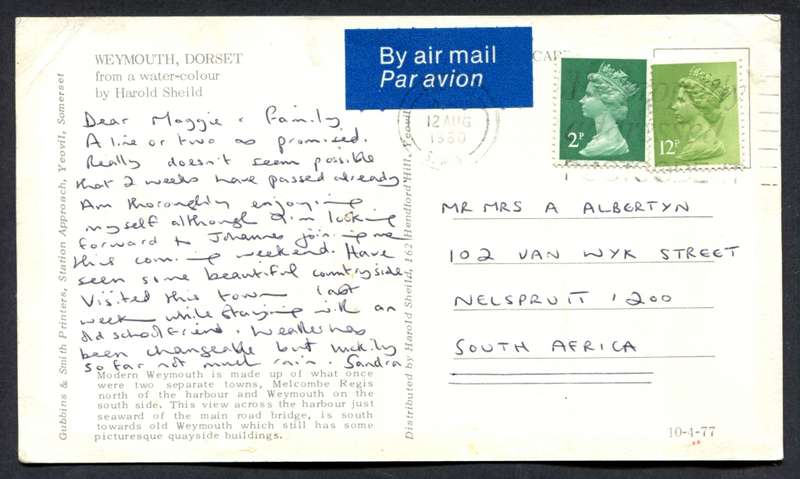 WEYMOUTH, DORSET
from a water-colour
by Harold Sheild
Dear Maggie & Family
A line or two as promised.
Really doesn't seem possible
that 2 weeks have passed already
Am thoroughly enjoying
myself although I'm looking
forward to Johannes joining me
this coming weekend. Have
seen some beautiful countryside
Visited this town last
week while staying with an
old schoolfriend. Weather has
been changeable but luckily
so far not much rain. Sandra
Modern Weymouth is made up of what once
were two separate towns, Melcombe Regis
north of the harbour and Weymouth on the
south side. This view across the harbour just
seaward of the main road bridge, is south
towards old Weymouth which still has some
picturesque quayside buildings.
Gubbins & Smith Printers, Station Approach, Yeovil, Somerset
Distributed by Harold Sheild, 162 Hendford Hill, Yeovil
By air mail
Par avion
CARD
12 AUG
1980
2P
12P
MR MRS A ALBERTYN
102 VAN WYK STREET
NELSPRUIT 1200
SOUTH AFRICA
10-4-77